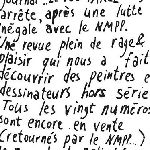 journal
arrête, après une lutte
inégale avec le NMPP.
Une revue plein de rage &
plaisir qui nous a fait
découvrir des peintres e
dessinateurs hors série
Tous les vingt numéros
sont encore en vente
(retournés par le NMPP...)